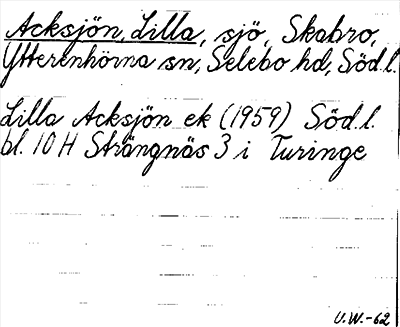 Acksjön, Lilla, sjö, Skabro,
Ytterenhörna sn, Selebo hd, Södl.
Lilla Acksjön ek (1959) Södl.
bl. 10 H Strängnäs 3 i Turinge
U.W.-62